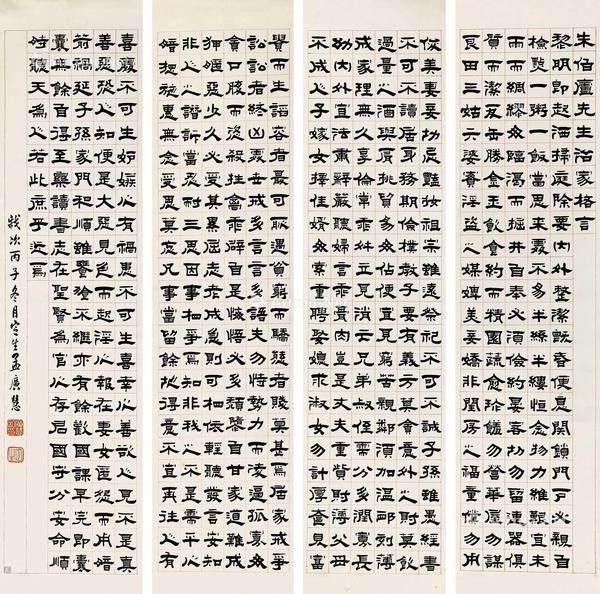 朱伯廬先生治家格言
黎明即起洒掃庭除要內外整潔既昏便息關鎖門戶必親自
檢點一粥一飯當思來處不易半絲半縷恒念物力維艱宜未
雨而綢繆毋臨渴而掘井自奉必須儉約宴客切勿留連器具
質而潔瓦缶勝金玉飲食約而精園蔬愈珍饈勿營華屋勿謀
良田三姑六婆實淫盜之媒婢美妾嬌非閨房之福童僕勿用
俊美妻妾切忌豔妝祖宗雖遠祭祀不可不誠子孫雖愚經書
不可不讀居身務期儉樸教子要有義方莫貪意外之財莫飲
過量之酒與肩挑貿易毋佔便宜見貧苦親鄰須加溫卹刻薄
成家理無久享倫常乖舛立見消亡兄弟叔侄需分多潤寡長
幼內外宜法肅辭嚴聽婦言乖骨肉豈是丈夫重貲財薄父母
不成人子嫁女擇佳婿毋索重聘娶媳求淑女勿計厚奩見富
貴而生諂容者最可恥遇貧窮而驕態者賤莫甚焉居家戒爭
訟訟者終凶處世戒多言多語失勿恃勢力而凌逼孤寡毋
貪口腹而恣殺牲禽乖僻自是悔悟必多頹隳自甘家道難成
狎暱惡少久必受其累屈志老成急則可相依輕聽發言安知
非人之譖訴當忍耐三思因事相爭焉知非我之不是需平心
暗想施惠無念受恩莫忘凡事當留餘地得意不宜再往人有
喜慶不可生妒嫉心有禍患不可生喜幸心善欲人見不是真
善惡恐人知便是大惡見色而起淫心報在妻女匿怨而用暗
箭禍延子孫家門和順雖饔飧不繼亦有餘歡國課早完即囊
橐無餘自得至樂讀書志在聖賢為官心存君國守分安命順
時聽天為人若此庶乎近焉
歲次丙子冬月定生孟廣慧